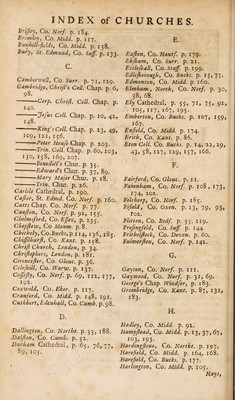 INDEX of CHURCHES.
Brisley, Co. Norf. p. 184.
Bromley, Co. Midd. p. 117.
Bunhill-fields, Co. Midd. p. 138.
Bury, St. Edmund, Co. Suff. p. 133.
C.
Camberwell, Co. Surr. p. 71, 129.
Cambridge, Christ's Coll. Chap. p. 6,
98.
Corp. Christi. Coll. Chap. p.
140.
Jesus Coll. Chap. p. 10, 42,
148.
King's Coll. Chap. p. 23, 49,
109, 111, 156.
Peter House Chap. p. 203.
Trin. Coll. Chap. p. 60, 103,
130, 158, 169, 207.
Benedict's Chur. p. 35.
Edward's Chur. p. 37, 89.
Mary Major Chur. p. 18.
Trin. Chur. p. 26.
Carlisle Cathedral, p. 190.
Castor, St. Edmd. Co. Norf. p. 160.
Catti Chap. Co. Norf. p. 77.
Causton, Co. Norf. p. 92, 155.
Chelmsford, Co. Essex, p. 235.
Chepstow, Co. Monm. p. 8.
Chichely, Co. Bucks, p. 114, 136, 185.
Chislehurst, Co. Kant. p. 158.
Christ Church, London, p. 34.
Christophers, London, p. 181.
Cirencester, Co. Glouc. p. 36.
Coleshill, Co. Warw. p. 131.
Colfesby, Co. Norf. p. 69, 122, 177,
192.
Coxwold, Co. Ebor. p. 117.
Cranford, Co. Midd. p. 148, 191.
Cuthbert, Edenhall, Co. Cumb. p. 98.
D.
Dallington, Co. Northt. p. 33, 188.
Dalston, Co. Cumb. p. 52.
Durham Cathedral, p. 65, 76, 77,
89, 105.
E.
Easton, Co. Hants. p. 179.
Ebsham, Co. Surr. p. 21.
Eccleshall, Co. Staff. p. 199.
Ellesborough, Co. Bucks. p. 15, 77.
Edmonton, Co. Midd. p. 160.
Elmham, North, Co. Norf. p. 30,
38, 68.
Ely Cathedral, p. 55, 71, 75, 92,
105, 117, 167, 195.
Emberton, Co. Bucks. p. 107, 159,
167.
Enfield, Co. Midd. p. 174.
Erith, Co. Kant. p. 86.
Eton Coll. Co. Bucks. p. 14, 21, 29,
43, 58, 117, 129, 157, 166.
F.
Fairford, Co. Glouc. p. 11.
Fakenham, Co. Norf. p. 108, 173,
174, 202.
Felthorp, Co. Norf. p. 185.
Fifield, Co. Oxon. p. 13, 79, 93,
102.
Flitton, Co. Bedf. p. 55, 119.
Fresingfeld, Co. Suff. p. 144.
Frithelstock, Co. Devon. p. 60.
Fulmerston, Co. Norf. p. 141.
G.
Gayton, Co. Norf. p. 111.
Gaywood, Co. Norf. p. 31, 69.
George's Chap. Windsor, p. 183.
Groombridge, Co. Kant. p. 87, 131,
183.
H.
Hadley, Co. Midd. p. 92.
Hampstead, Co. Midd. p. 23, 37, 67,
103, 193.
Hardingstone, Co. Northt. p. 197.
Harefield, Co. Midd. p. 164, 168.
Harefield, Co. Bucks. p. 177.
Harlington, Co. Midd. p. 105.
Hays,